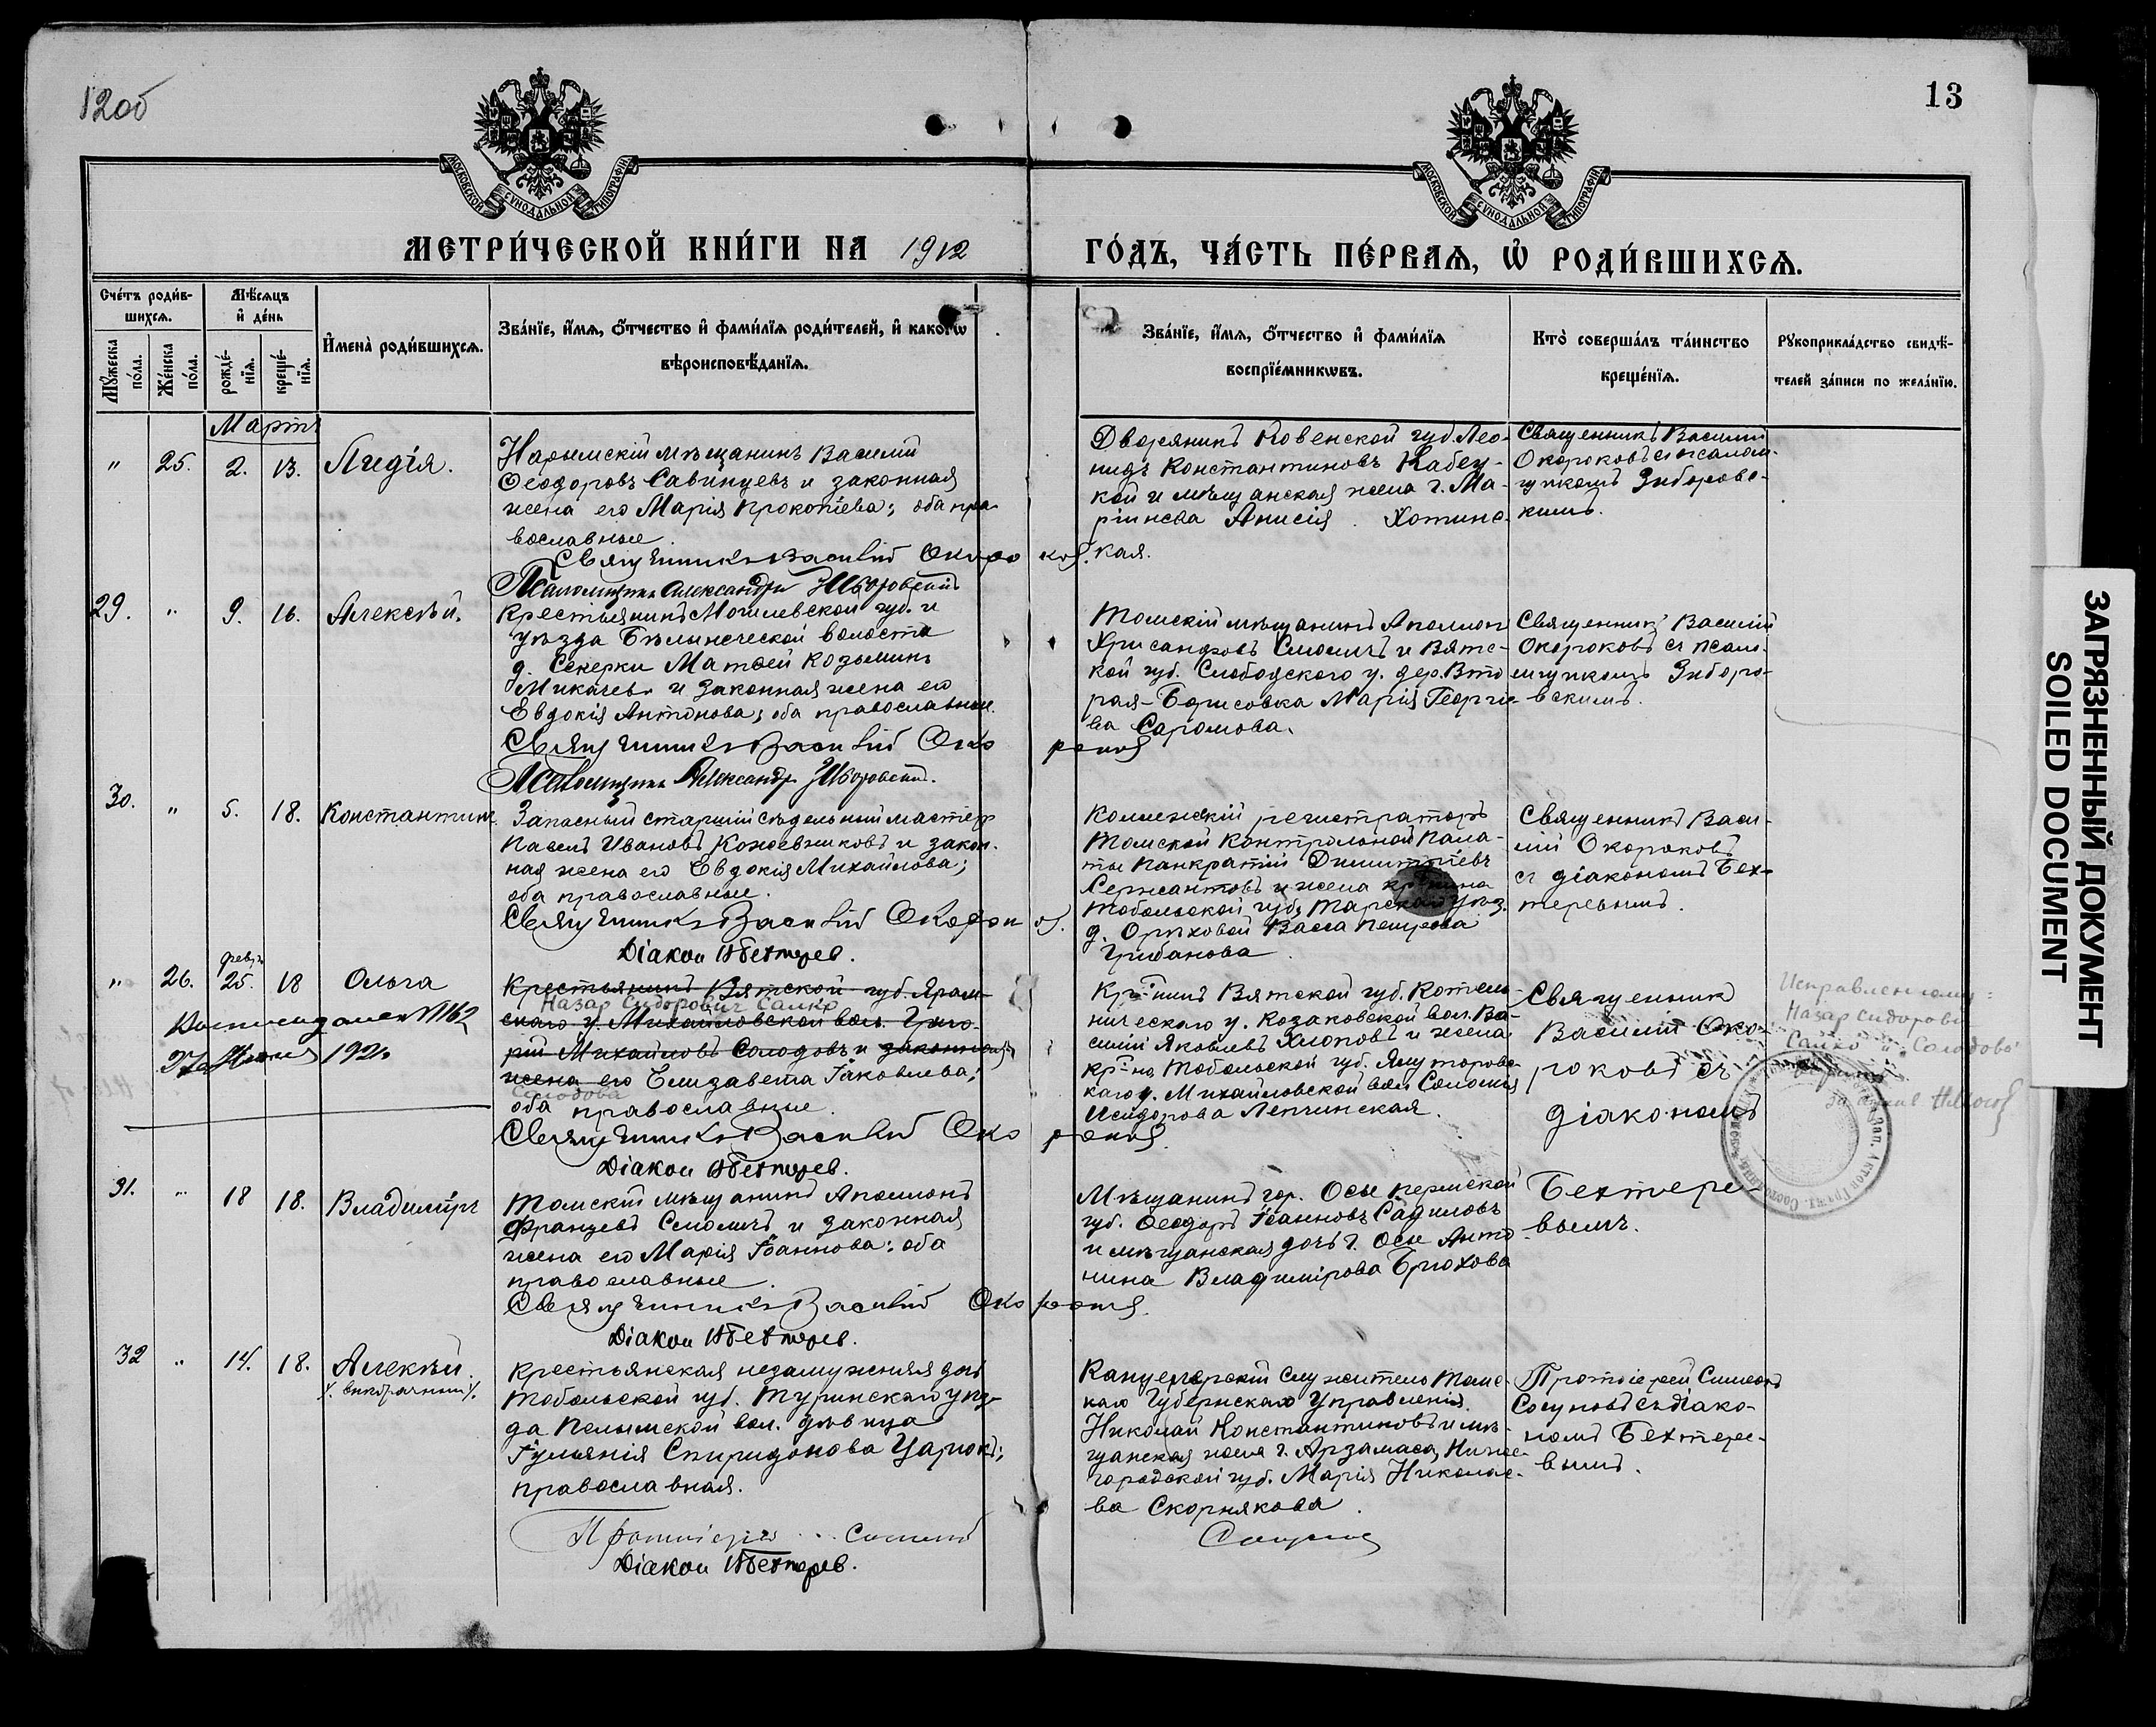 12об
13
МОСКОВСКОЙ СѴНОДАЛЬНОЙ ТИПОГРАФІИ
МОСКОВСКОЙ СѴНОДАЛЬНОЙ ТИПОГРАФІИ
МЕТРИ́ЧЕСКОЙ КНИ́ГИ НА 1912 ГО́ДЪ, ЧА́СТЬ ПЕ́РВАѦ, Ѡ҆ РОДИ́ВШИХСѦ.
Сче́тъ роди́в-
шихсѧ.
Мꙋ́жеска по́ла.
Же́нска по́ла.
Мѣ́сѧцъ
и҆ де́нь
рожде́-
нїѧ.
креще́-
нїѧ.
И҆мена̀ роди́вшихсѧ.
Зва́нїе, и҆́мѧ, ѻ҆́тчество и҆ фами́лїѧ роди́телей, и҆ како́гѡ
вѣроисповѣ́данїѧ.
Зва́нїе, и҆́мѧ, ѻ҆́тчество и҆ фами́лїѧ
воспрїе́мникѡвъ.
Кто̀ соверша́лъ та́инство
креще́нїѧ.
Рꙋкоприкла́дство свидѣ́-
телей за́писи по жела́нїю.
Мартъ
" 25. 2. 13. Лидія.
Нарымскій мѣщанинъ Василій
Ѳеодоровъ Савинцевъ и законная
жена его Марія Прокопіева; оба пра
вославные.
Священникъ Василій Окороковъ.
Псаломщикъ Александръ Зиборовскій
Дворянинъ Ковенской губ. Лео-
нидъ Константиновъ
кой и мѣщанская жена г. Ма-
ріинска Анисія Хотинс-
кая.
Священникъ Василій
Окороковъ съ псалом-
щикомъ Зиборовс-
кимъ.
29. " 9. 16. Алексѣй.
Крестьянинъ Могилевской губ. и
уѣзда Бѣлыничской волости
д. Секерки Матѳей Козьминъ
Микачевъ и законная жена его
Евдокія Антонова; оба православные.
Священникъ Василій Окороковъ
Псаломщикъ Александръ Зиборовскій.
Томскій мѣщанинъ Аполлон
Хрисанфовъ Смоличъ и Вятс-
кой губ. Слободского у. дер. Вто
рая-Борисовка Марія Георгіе-
ва Саромова.
Священникъ Василій
Окороковъ съ псало-
мщикомъ Зиборо-
вскимъ.
30. " 5. 18. Константинъ.
Запасный старшій сѣдельный мастеръ
Павелъ Ивановъ Кожевниковъ и закон-
ная жена его Евдокія Михайлова;
оба православные.
Священникъ Василій Окороковъ.
Діакон Бехтерев.
Коллежскій регистраторъ
Томской Контрольной Пала-
ты Панкратій Димитріевъ
Сержантовъ и жена
Тобольской губ. Тарскаго уѣз.
д. Орѣховой Васса Петрова
Грибанова.
Священникъ Васи-
лій Окороковъ
съ діакономъ Бех-
теревымъ.
февр.
" 26. 25. 18 Ольга
27 1921
Крестьянинъ Вятской губ. Яран-
Назар Сидорович Сайко
скаго у. Михайловской вол. Григо-
рій Михайловъ Солодовъ и законная
жена его Елизавета Іаковлева;
Солодова
оба православные.
Священникъ Василій Окороковъ.
Діакон Бехтерев.
Кр-нинъ Вятской губ. Котель-
ническаго у. Козаковской вол. Ва-
силій Яковлевъ Хлоповъ и жена
кр-на Тобольской губ. Ялуторовс-
каго у. Михайловской вол. Соломія
Исидорова Лепчинская.
Священник
Василій Око-
роковъ съ
діакономъ
Исправленному:
Назар Сидорович
Сайко и Солодова
31. " 18 18. Владиміръ
Томскій мѣщанинъ Аполлонъ
Францевъ Смоличъ и законная
жена его Марія Іоаннова; оба
православные.
Священникъ Василій Окороковъ.
Діакон Бехтерев.
Мѣщанинъ гор. Осы Пермской
губ. Ѳеодоръ Іоанновъ Садиловъ
и мѣщанская дочь г. Осы Анто-
нина Владимірова Брюхова
Бехтере-
вымъ.
32 " 14. 18. Алексѣй.
/. внебрачный /.
Крестьянская незамужняя дочь
Тобольской губ. Туринскаго уѣз-
да Пелымской вол. дѣвица
Іуліанія Спиридонова Царюкъ;
православная.
Протоіерей Симеонъ Сосуновъ
Діакон Бехтерев.
Канцелярскій служитель Томс-
каго Губернскаго Управленія
Николай Константиновъ и мѣ-
щанская жена г. Арзамаса, Ниже-
городской губ. Марія Николае-
ва Скорнякова.
Протоіерей Симеонъ
Сосуновъ съ діако-
номъ Бехтере-
вымъ.
ЗАГРЯЗНЕННЫЙ ДОКУМЕНТ
SOILED DOCUMENT